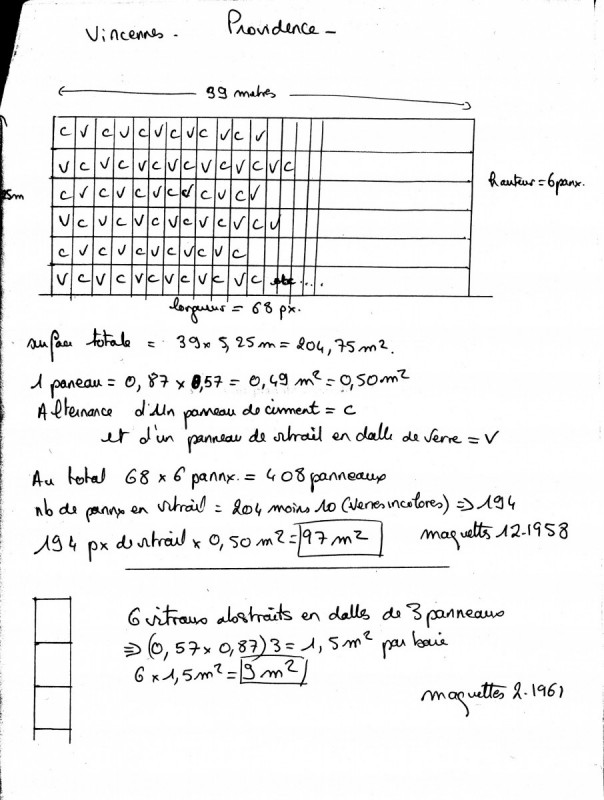 Vincennes - Providence -
39 mètres
C V C V C V C V C V C V
V C V C V C V C V C V C V C
hauteur = 6 panx.
25m
C V C V C V C V C V C V
V C V C V C V C V C V C V
C V C V C V C V C V C
V C V C V C V C V C V C etc ....
longueur = 68 px.
surface totale = 39 x 5,25m = 204,75 m².
1 paneau = 0,87 x 0,57 = 0,49 m² = 0,50 m²
Alternance d'un panneau de ciment = C
et d'un panneau de vitrail en dalle de verre = V
Au total 68 x 6 pannx. = 408 panneaux
nb de pannx en vitrail = 204 moins 10 (verres incolores) => 194
194 px de vitrail x 0,50 m² = 97 m²
maquettes 12-1958
6 vitraux abstraits en dalles de 3 panneaux
=> (0,57 x 0,87) 3 = 1,5 m² par baie
6 x 1,5 m² = 9 m²
maquettes 2-1961